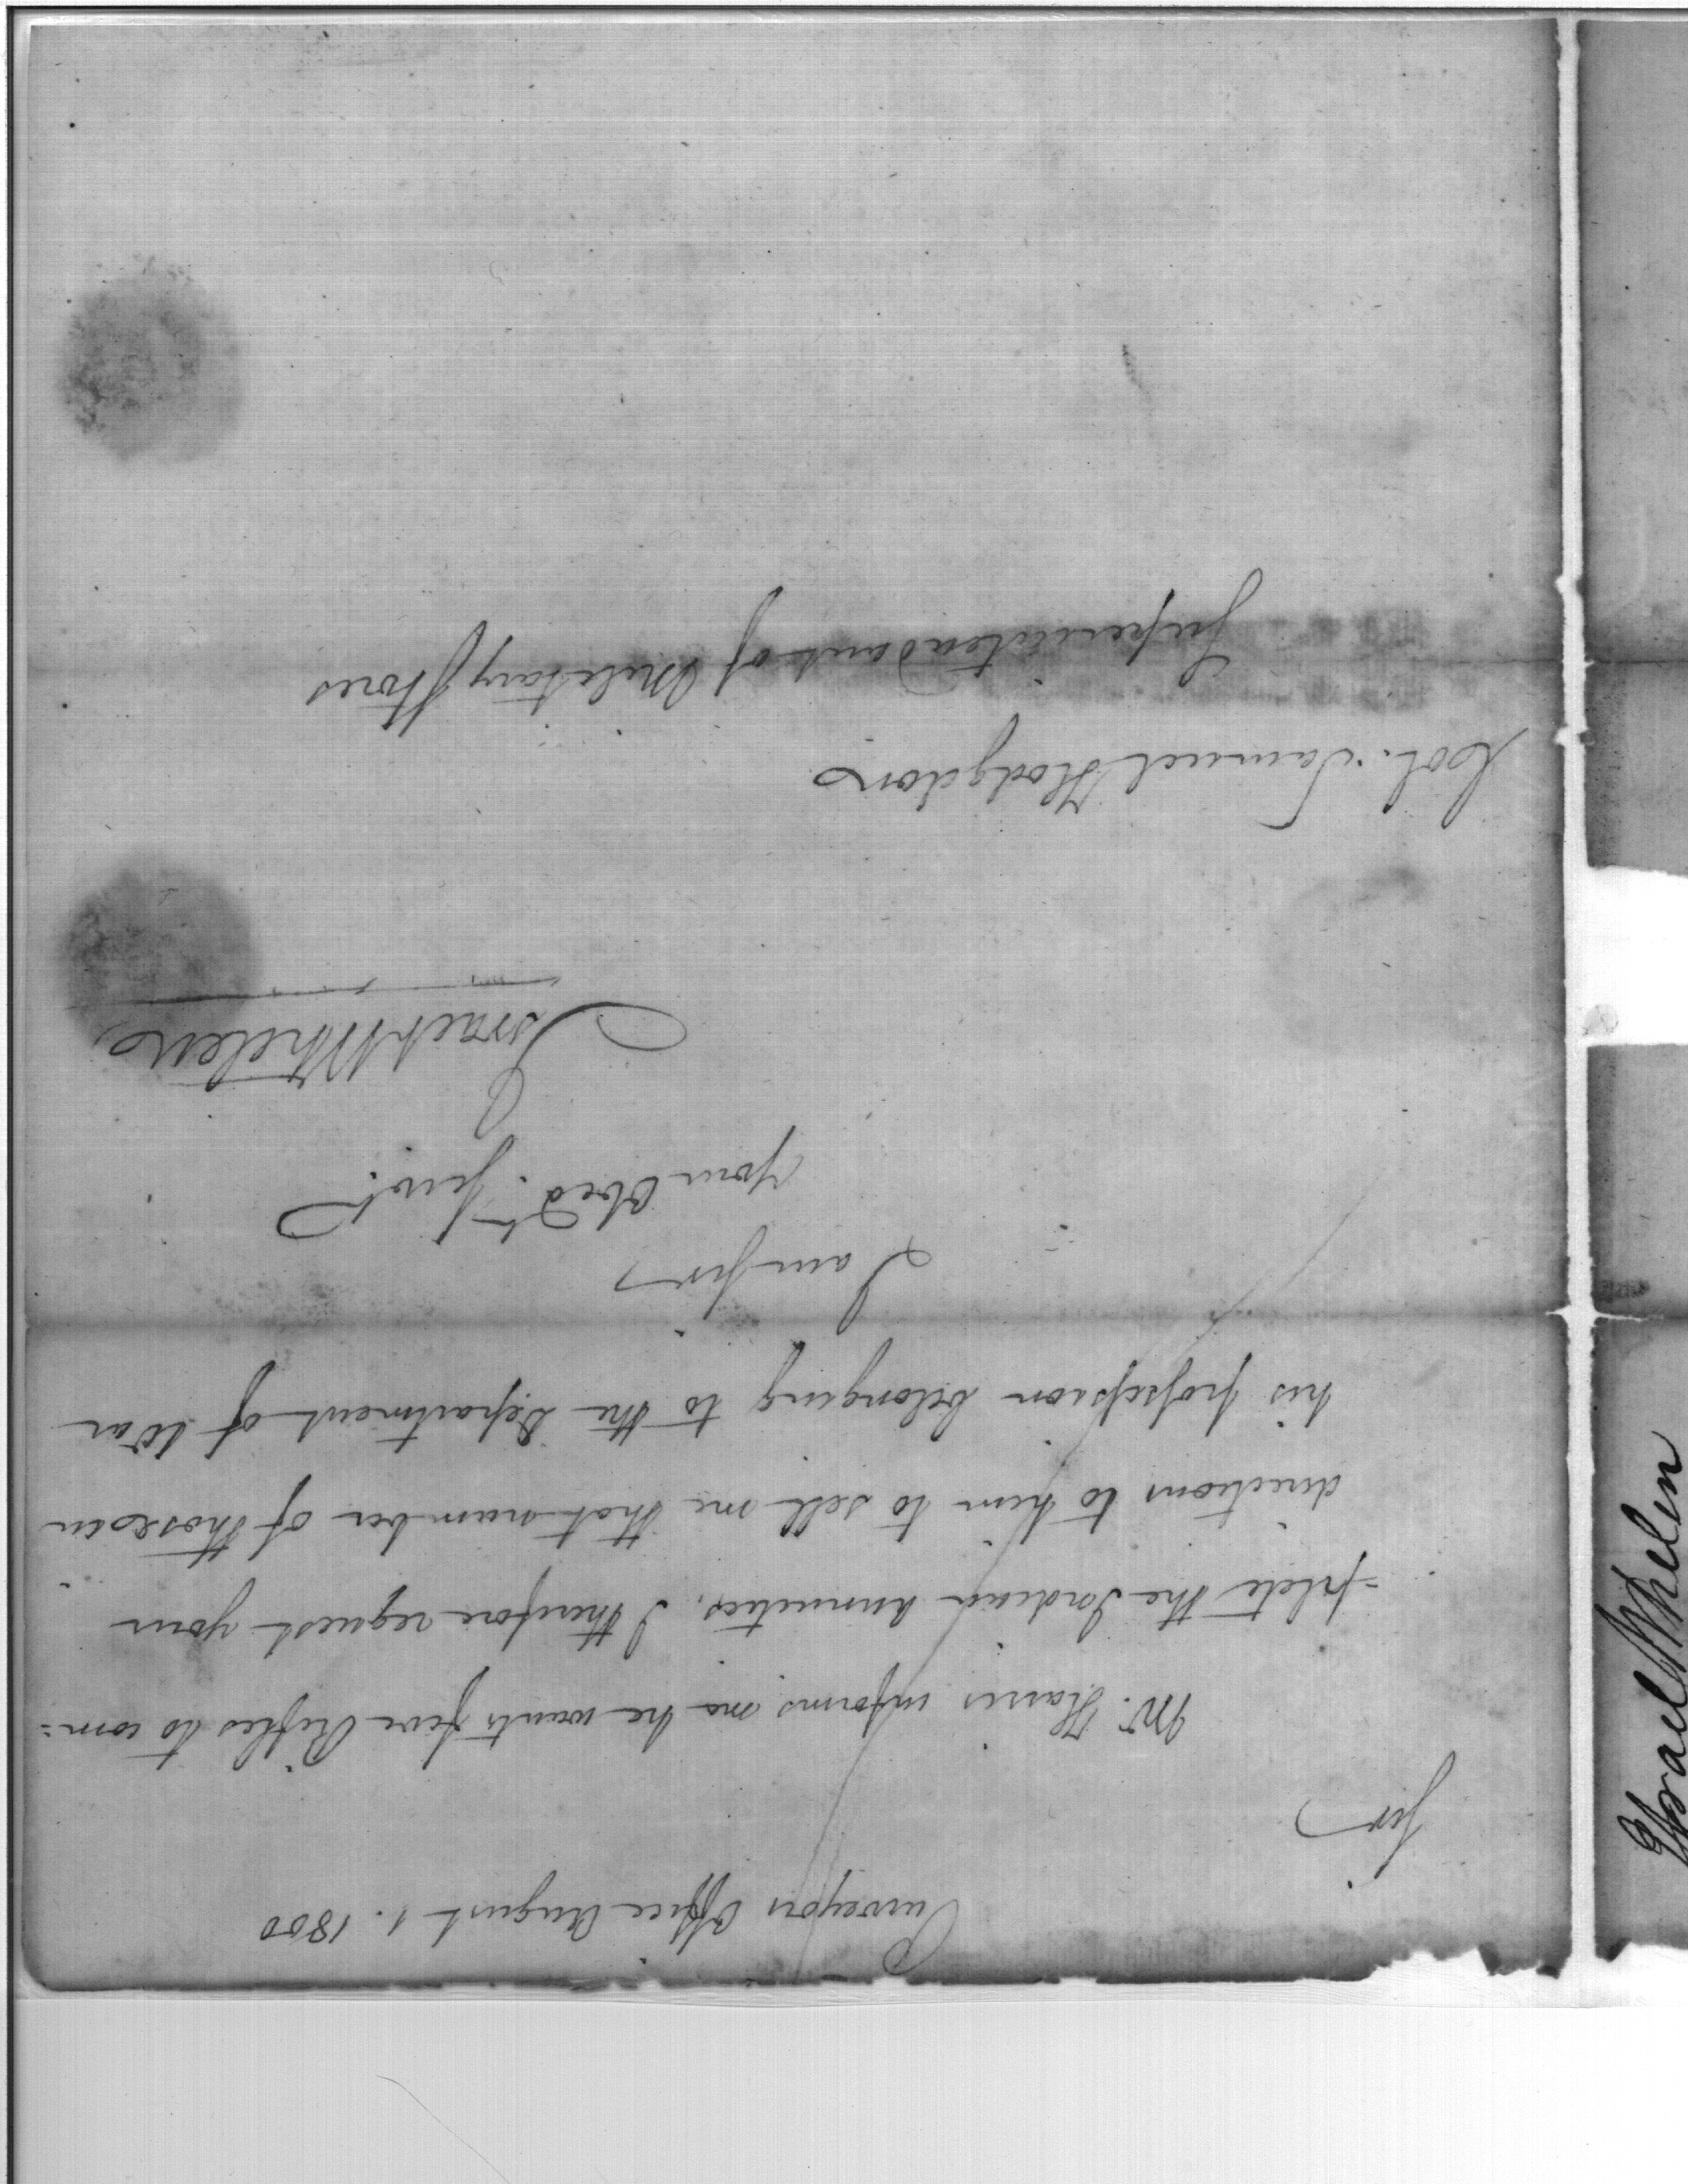 Purveyors Office August 1. 1800
Sir
Mr. Harris informs me he wants five Rifles to com=
-plete the Indian Annuities, I therefore request your
directions to him to sell me that number of those in
his possession belonging to the Department of War
I am Sir
Your Obedt. Servt.
Israel Whelen
Col. Samuel Hodgdon
Superintendant of Military Stores
Israel Whelen